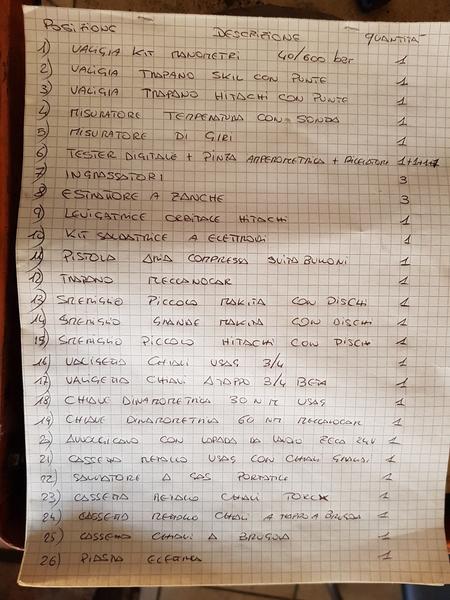 POSIZIONE DESCRIZIONE QUANTITA'
1) VALIGIA KIT MANOMETRI 40/600 bar 1
2) VALIGIA TRAPANO SKIL CON PUNTE 1
3) VALIGIA TRAPANO HITACHI CON PUNTE 1
4) MISURATORE TEMPERATURA CON SONDA 1
5) MISURATORE DI GIRI 1
6) TESTER DIGITALE + PINZA AMPEROMETRICA + 1+1+1
7) INGRASSATORI 3
8) ESTRATTORE A ZANCHE 3
9) LEVIGATRICE ORBITALE HITACHI 1
10) KIT SALDATRICE A ELETTRODI 1
11) PISTOLA ARIA COMPRESSA SVITA BULLONI 1
12) TRAPANO MECCANOCAR 1
13) SMERIGLIO PICCOLO MAKITA CON DISCHI 1
14) SMERIGLIO GRANDE MAKITA CON DISCHI 1
15) SMERIGLIO PICCOLO HITACHI CON DISCHI 1
16) VALIGETTA CHIAVI USAG 3/4 1
17) VALIGETTA CHIAVI A TAPPO 3/4 BETA 1
18) CHIAVE DINAMOMETRICA 30 N M USAG 1
19) CHIAVE DINAMOMETRICA 60 NM MECCANOCAR 1
20) AVVOLGICAVO CON LAMPADA DA LAVORO ZECA 24V 1
21) CASSETTA METALLO USAG CON CHIAVI 1
22) SALDATORE A GAS PORTATILE 1
23) CASSETTA METALLO CHIAVI TORX 1
24) CASSETTA METALLO CHIAVI A TAPPO A BRUGOLA 1
25) CASSETTA CHIAVI A BRUGOLA 1
26) PIASTRA ELETTRICA 1